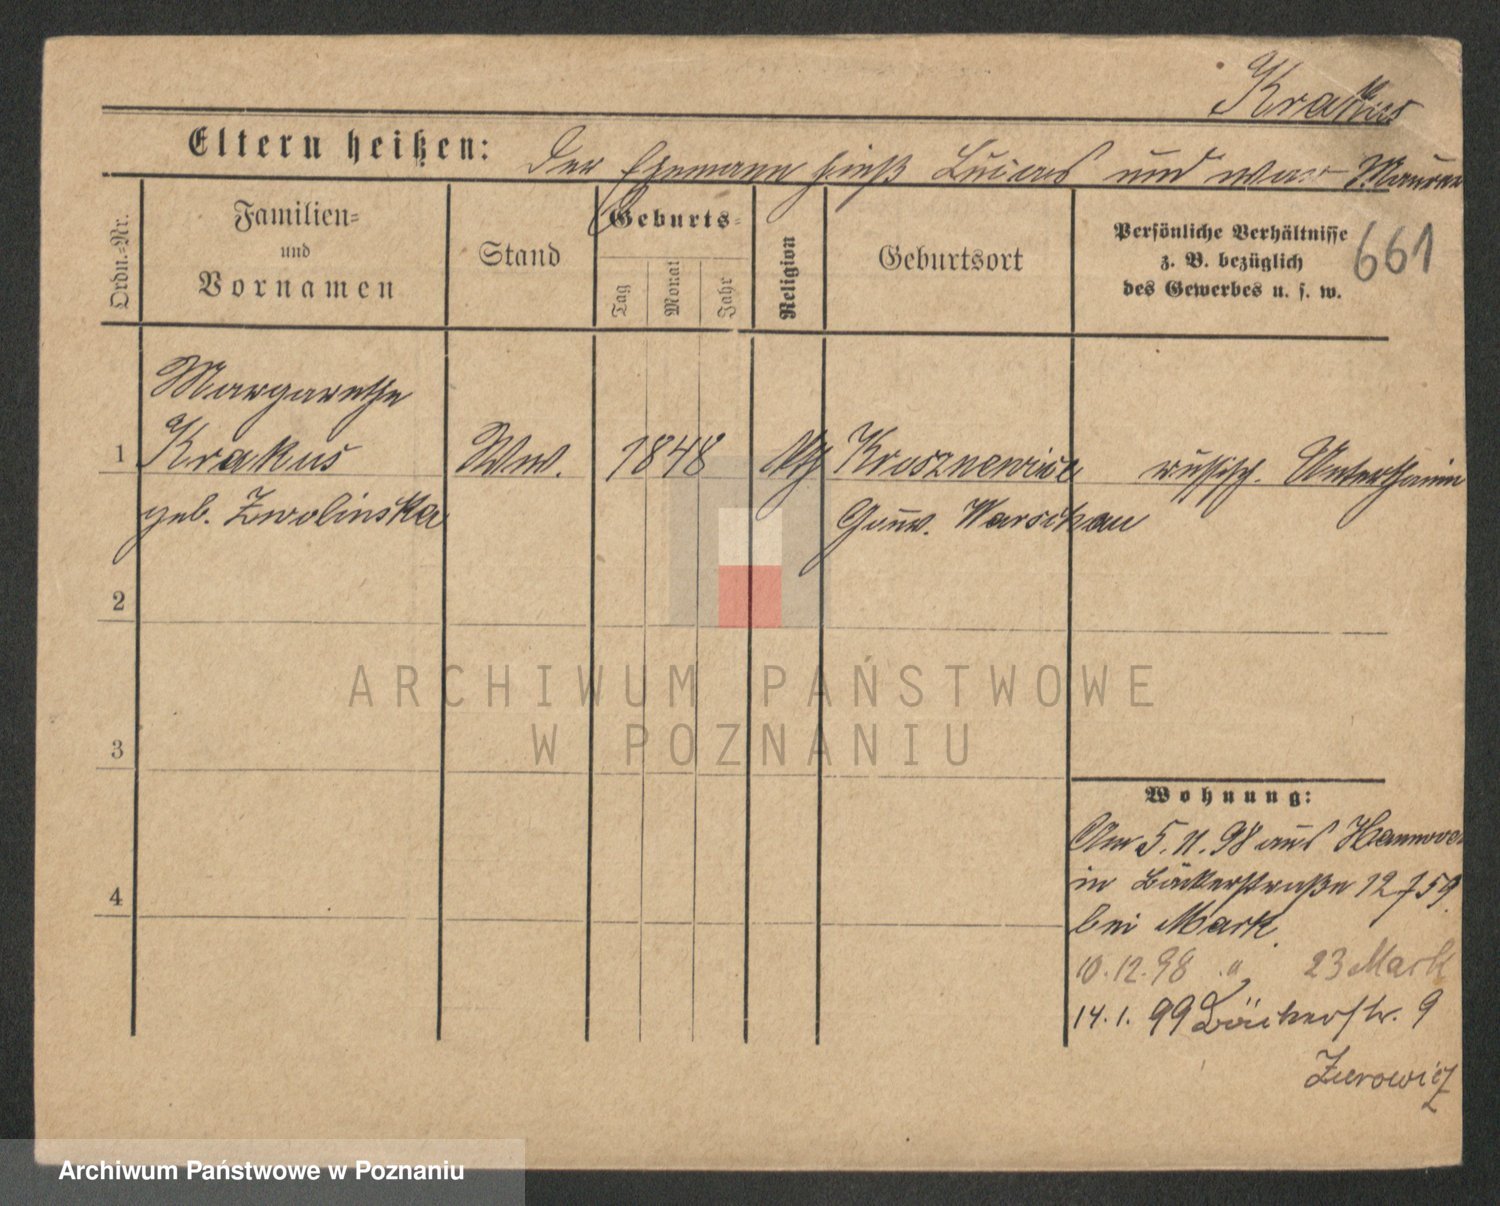 Krakus
Eltern heißen: Der Ehemann hieß Lucas und war Maurer
Ordn.-Nr.
Familien-
und
Vornamen
Stand
Geburts-
Tag
Monat
Jahr
Religion
Geburtsort
Persönliche Verhältnisse
z. B. bezüglich
des Gewerbes u. s. w.
661
Margarethe
1 Krakus Ww. 1848 kth Krosznewice russisch. Unterthanin
geb. Zwolinska Gouv. Warschau
2
3
4
Wohnung:
Am 5.11.98 aus Hannover
in Bäckerstraße 12
bei Mark.
10.12.98 " 23 Mark
14.1.99 Bäckerstr. 9
Zurowicz
ARCHIWUM PAŃSTWOWE
W POZNANIU
Archiwum Państwowe w Poznaniu